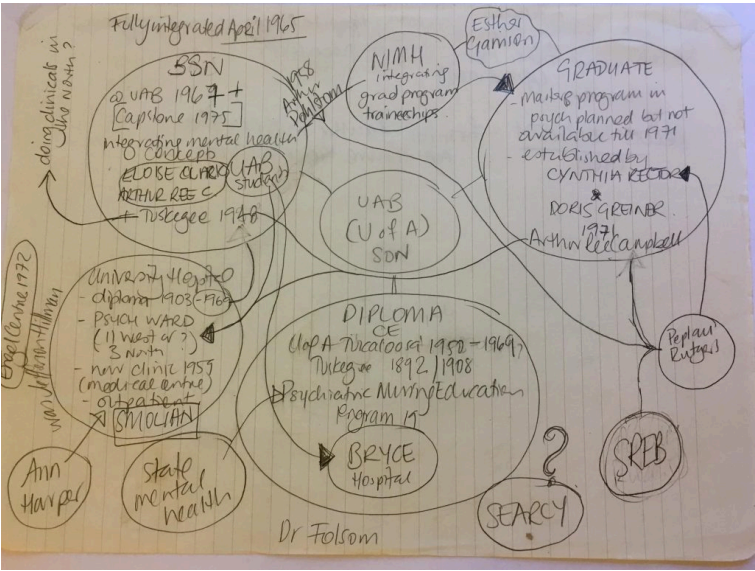 Fully integrated April 1965
doing clinicals in
the North?
BSN
@ UAB 1967 ++
[Capstone 1975]
integrating mental health
concept
ARTHUR REE C
UAB
students
+ Tuskegee 1948
1958
NIMH
integrating
grad program
traineeships.
Esther
GRADUATE
- masters program in
psych planned but not
available till 1971
- established by
CYNTHIA RECTOR
&
DORIS GREINER
1971
Arthur Ree Campbell
UAB
(U of A)
SON
University Hospital
- diploma 1903 - 1969
- PSYCH WARD
(11 West or?
3 North)
- new clinic 1955
(medical centre)
- outpatient
SMOLIAN
Engel Centre 1972
Hillman
DIPLOMA
CE
U of A Tuscaloosa 1952 - 1969?
Tuskegee 1892/1908
Psychiatric Nursing Education
Program
BRYCE
Hospital
Peplau
Rutgers
SREB
?
SEARCY
Ann
Harper
State
mental
health
Dr Folsom